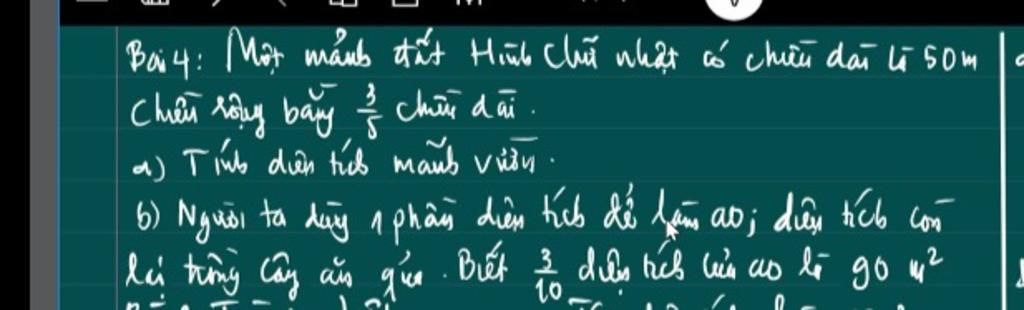 Bài 4: Một mảnh đất Hình chữ nhật có chiều dài là 50m
chiều rộng bằng 3/5 chiều dài.
a) Tính diện tích mảnh vườn.
b) Người ta dùng 1 phần diện tích để làm ao; diện tích còn
lại trồng cây ăn quả. Biết 3/10 diện tích của ao là 90 m²